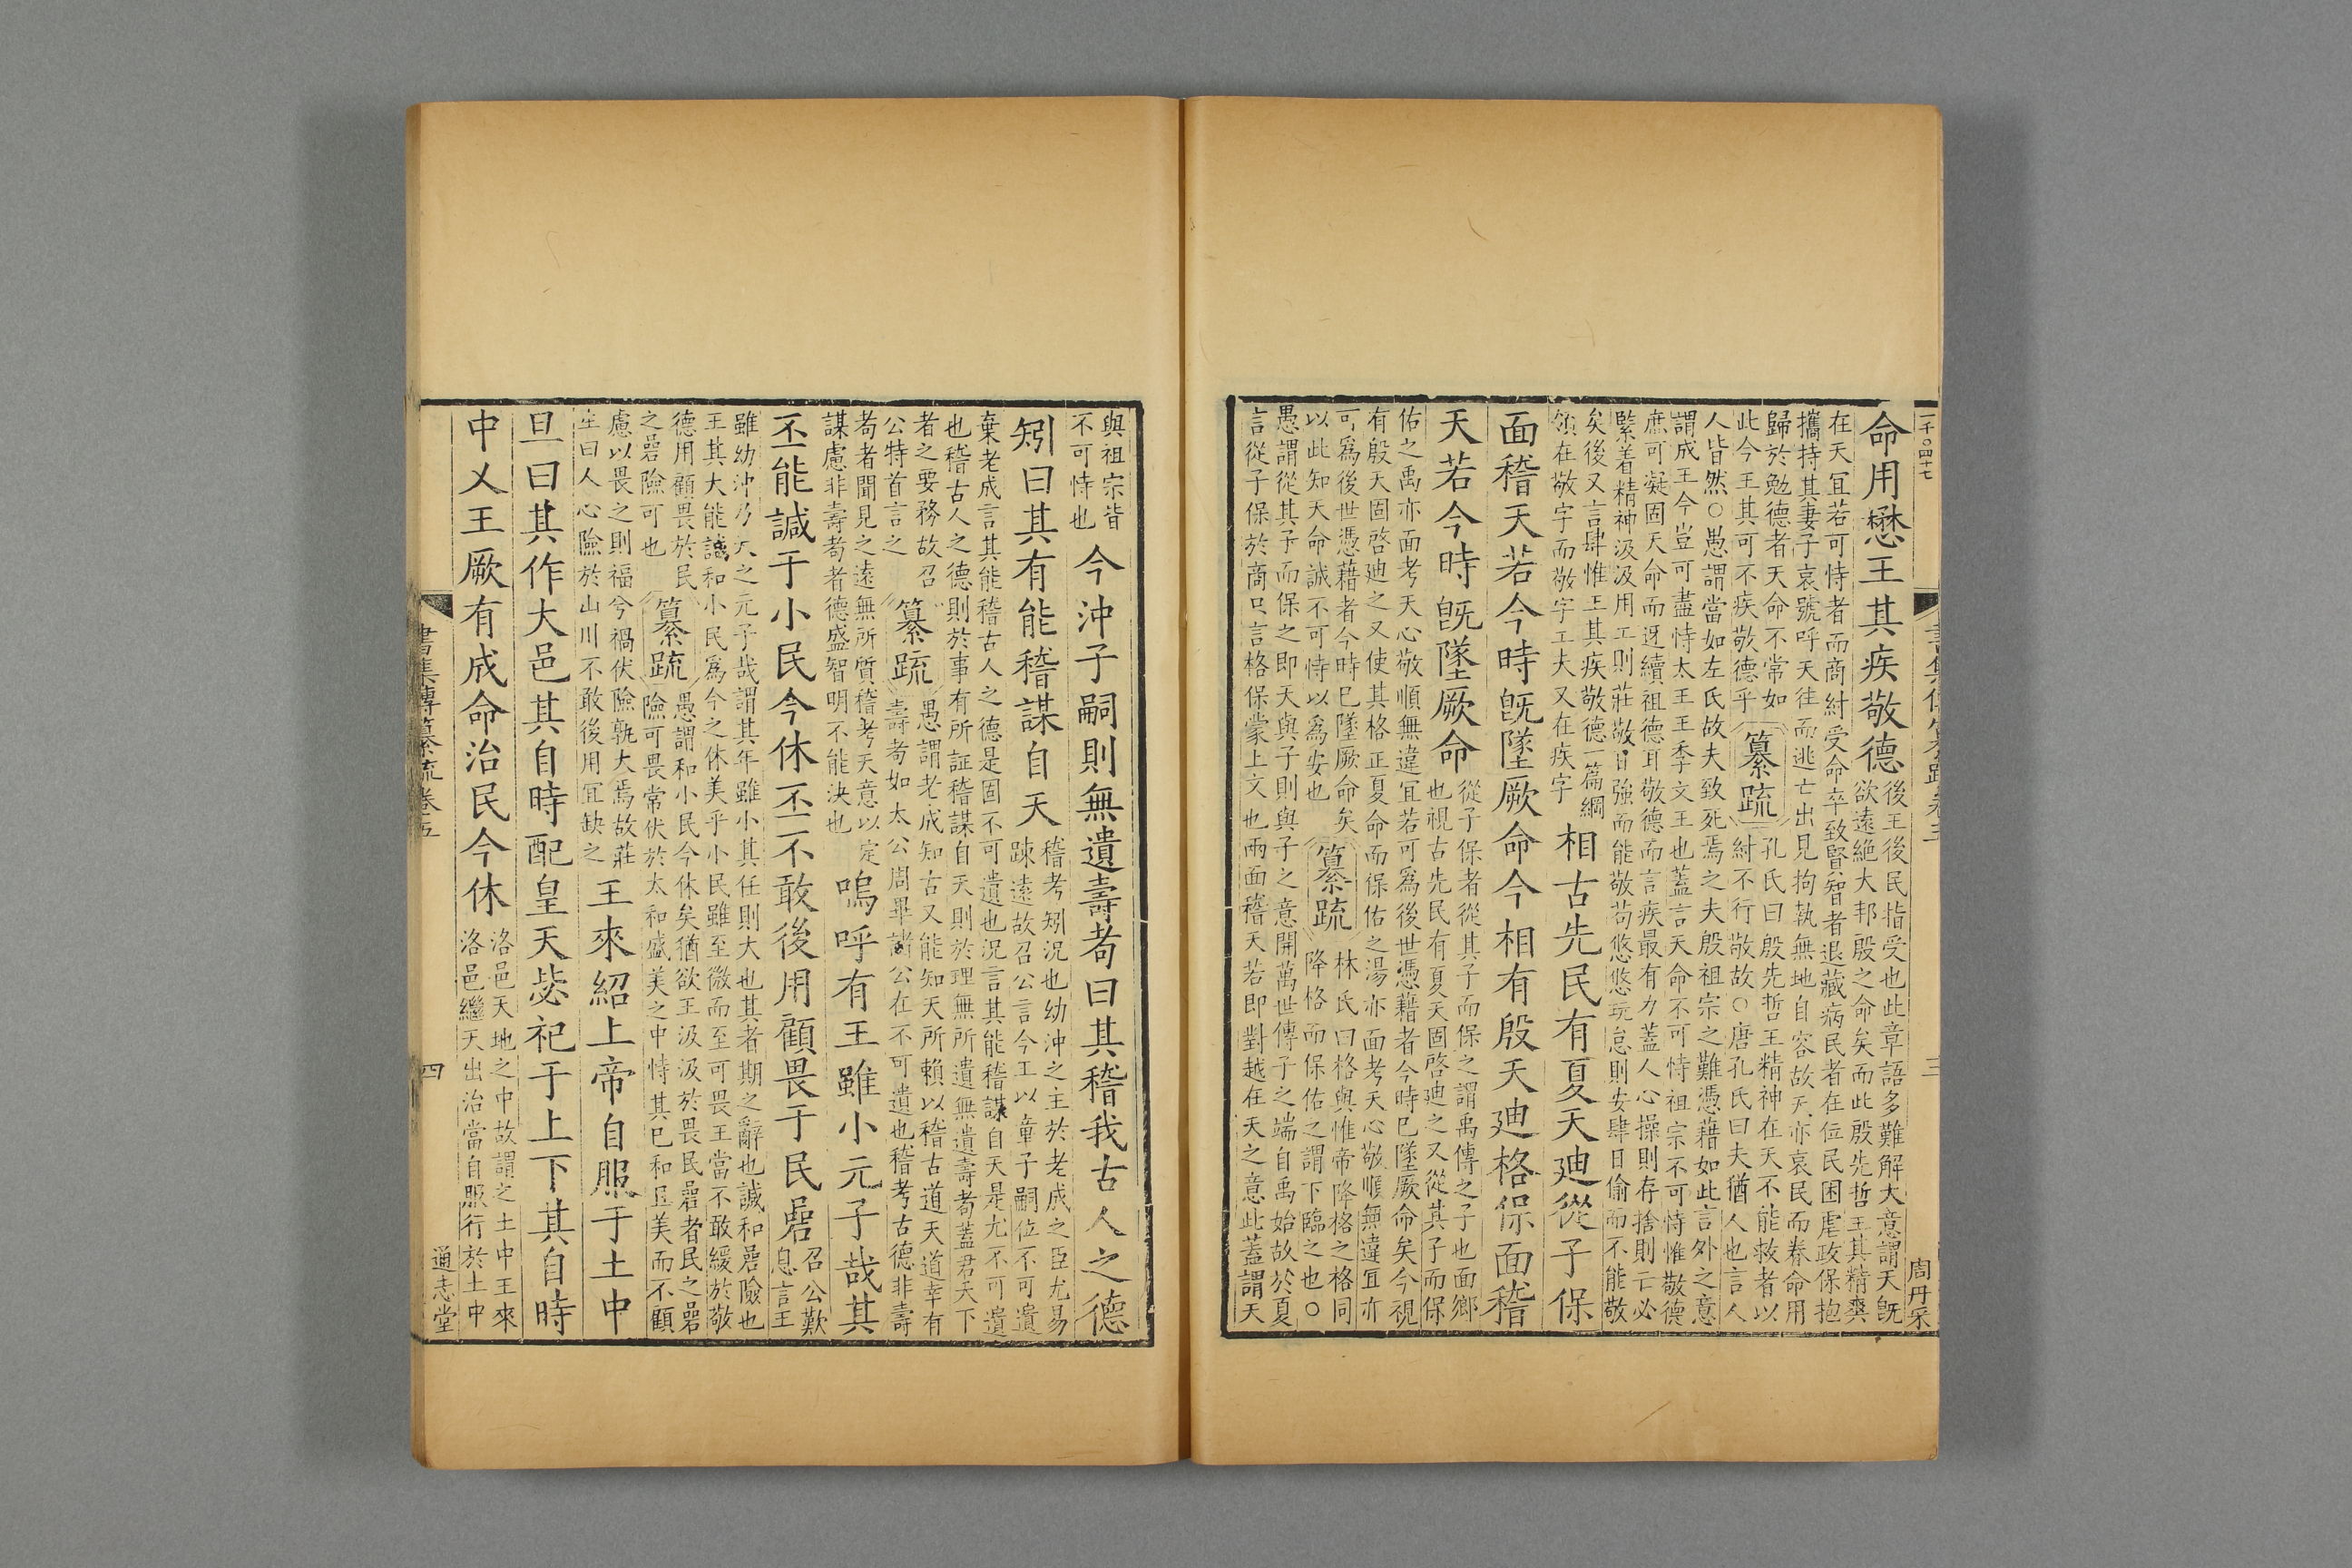 一千〇四十七
三
周丹采
命用懋王其疾敬德
後王後民指受也此章語多難解大意謂天既
欲遠絕大邦殷之命矣而此殷先哲王其精爽
在天宜若可恃者而商紂受命卒致賢智者退藏病民者在位民困虐政保抱
攜持其妻子哀號呼天往而逃亡出見拘執無地自容故天亦哀民而眷命用
歸於勉德者天命不常如
此今王其可不疾敬德乎
纂疏
孔氏曰殷先哲王精神在天不能救者以
紂不行敬故○唐孔氏曰夫猶人也言人
人皆然○愚謂當如左氏故夫致死焉之夫殷祖宗之難憑藉如此言外之意
謂成王今豈可盡恃太王王季文王也蓋言天命不可恃祖宗不可恃惟敬德
庶可凝固天命而迓續祖德耳敬德而言疾最有力蓋人心操則存捨則亡必
緊着精神汲汲用工則莊敬日强而能敬苟悠悠玩怠則安肆日偷而不能敬
矣後又言肆惟王其疾敬德一篇綱
領在敬字而敬字工夫又在疾字
相古先民有夏天迪從子保
面稽天若今時旣墜厥命今相有殷天迪格保面稽
天若今時旣墜厥命
從子保者從其子而保之謂禹傳之子也面鄉
也視古先民有夏天固啓迪之又從其子而保
佑之禹亦面考天心敬順無違宜若可爲後世憑藉者今時已墜厥命矣今視
有殷天固啓迪之又使其格正夏命而保佑之湯亦面考天心敬順無違宜亦
可爲後世憑藉者今時已墜厥命矣
以此知天命誠不可恃以爲安也
纂疏
林氏曰格與惟帝降格之格同
降格而保佑之謂下臨之也○
愚謂從其子而保之即天與子則與子之意開萬世傳子之端自禹始故於夏
言從子保於商只言格保蒙上文也兩面稽天若即對越在天之意此蓋謂天
與祖宗皆
不可恃也
今沖子嗣則無遺壽耇曰其稽我古人之德
矧曰其有能稽謀自天
稽考矧況也幼沖之主於老成之臣尤易
踈遠故召公言今王以童子嗣位不可遺
棄老成言其能稽古人之德是固不可遺也況言其能稽謀自天是尤不可遺
也稽古人之德則於事有所証稽謀自天則於理無所遺無遺壽耇蓋君天下
者之要務故召
公特首言之
纂疏
愚謂老成知古又能知天所賴以稽古道天道幸有
壽耇如太公周畢諸公在不可遺也稽考古德非壽
耇者聞見之遠無所質稽考天意以定
謀慮非壽耇者德盛智明不能決也
嗚呼有王雖小元子哉其
丕能諴于小民今休丕不敢後用顧畏于民碞
召公歎
息言王
雖幼沖乃天之元子哉謂其年雖小其任則大也其者期之辭也諴和碞險也
王其大能諴和小民爲今之休美乎小民雖至微而至可畏王當不敢緩於敬
德用顧畏於民
之碞險可也
纂疏
愚謂和小民今休矣猶欲王汲汲於畏民碞者民之碞
險可畏常伏於太和盛美之中恃其已和且美而不顧
慮以畏之則福兮禍伏險孰大焉故莊
生曰人心險於山川不敢後用宜缺之
王來紹上帝自服于土中
旦曰其作大邑其自時配皇天毖祀于上下其自時
中乂王厥有成命治民今休
洛邑天地之中故謂之土中王來
洛邑繼天出治當自服行於土中
書集傳纂疏卷五
四
通志堂